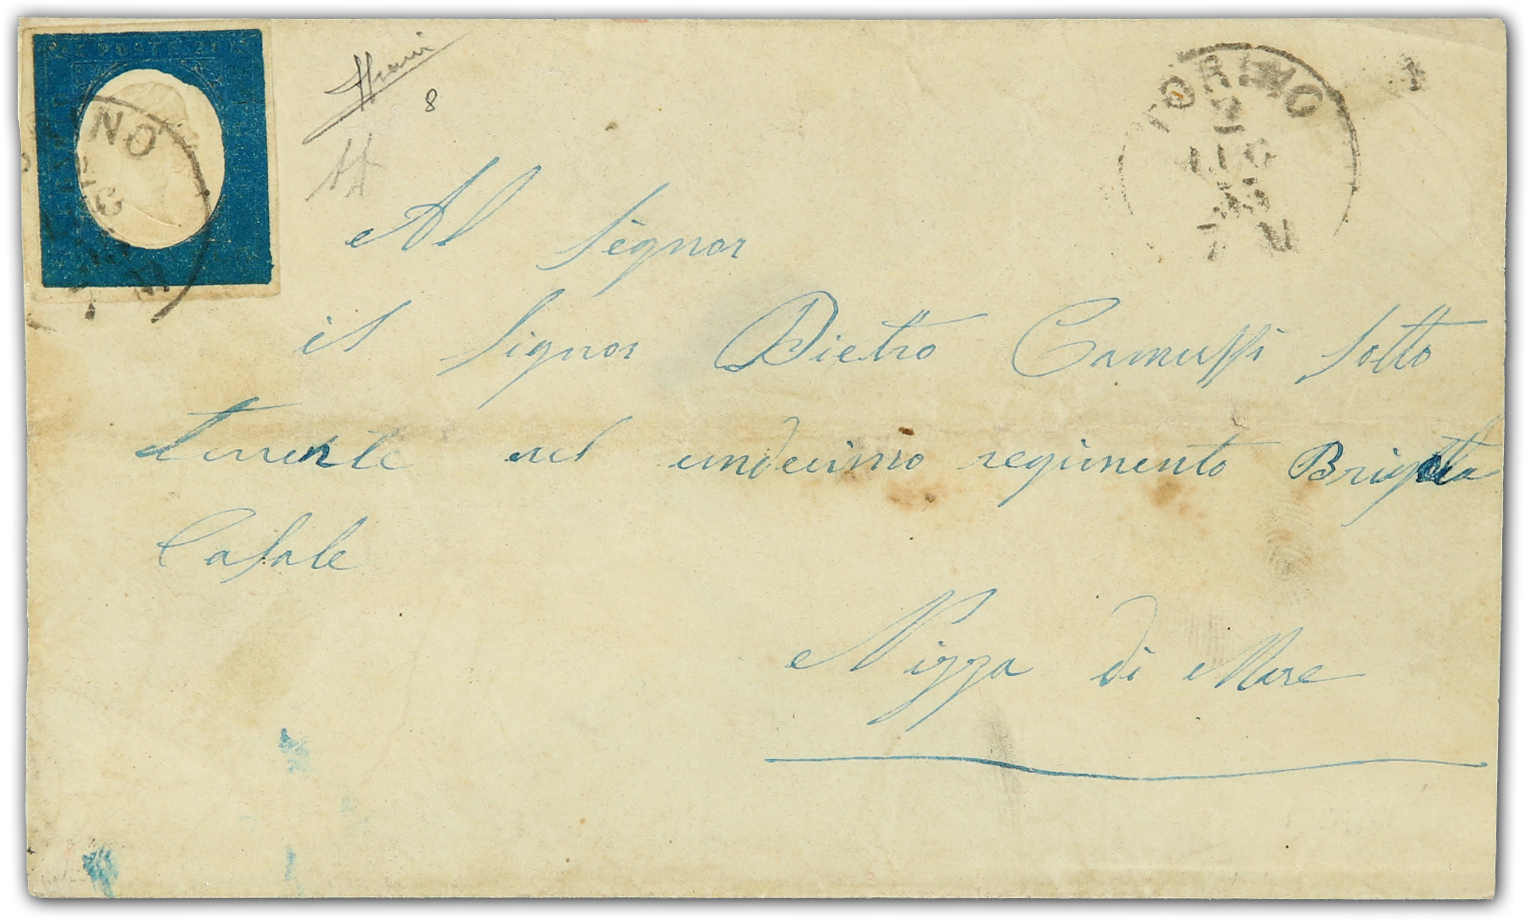 TORINO
LUG
Al Signor
il Signor Pietro Camussi Sotto
Tenente nel undecimo regimento Brigata
Casale
Nizza di Mare
8
NO